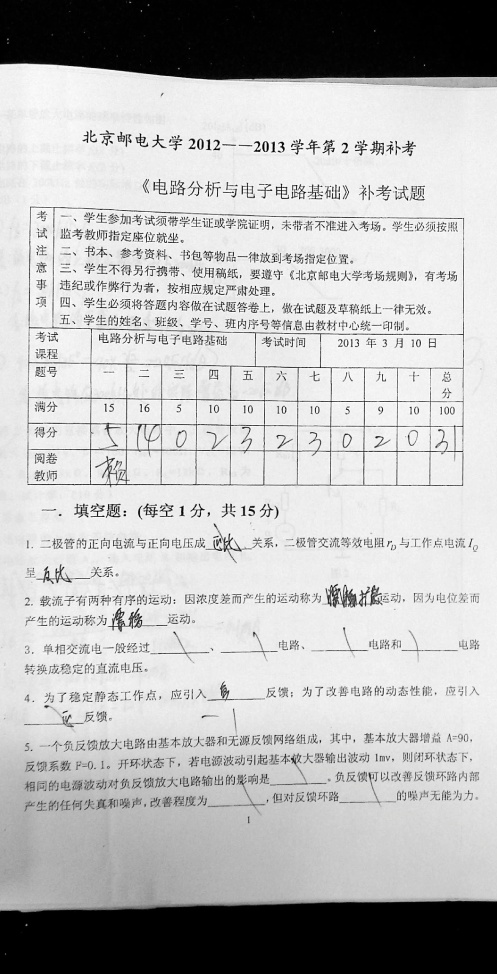 北京邮电大学 2012——2013 学年第 2 学期补考
《电路分析与电子电路基础》补考试题
考试注意事项
一、学生参加考试须带学生证或学院证明，未带者不准进入考场。学生必须按照
监考教师指定座位就坐。
二、书本、参考资料、书包等物品一律放到考场指定位置。
三、学生不得另行携带、使用稿纸，要遵守《北京邮电大学考场规则》，有考场
违纪或作弊行为者，按相应规定严肃处理。
四、学生必须将答题内容做在试题答卷上，做在试题及草稿纸上一律无效。
五、学生的姓名、班级、学号、班内序号等信息由教材中心统一印制。
考试课程 电路分析与电子电路基础 考试时间 2013 年 3 月 10 日
题号 一 二 三 四 五 六 七 八 九 十 总分
满分 15 16 5 10 10 10 10 5 9 10 100
得分 5 14 0 2 3 2 3 0 2 0 31
阅卷教师
一．填空题：(每空 1 分，共 15 分)
1. 二极管的正向电流与正向电压成 正比 关系，二极管交流等效电阻 r_D 与工作点电流 I_Q
呈 反比 关系。
2. 载流子有两种有序的运动：因浓度差而产生的运动称为 扩散 运动，因为电位差而
产生的运动称为 漂移 运动。
3. 单相交流电一般经过______、______电路、______电路和______电路
转换成稳定的直流电压。
4. 为了稳定静态工作点，应引入 负 反馈；为了改善电路的动态性能，应引入
正 反馈。
5. 一个负反馈放大电路由基本放大器和无源反馈网络组成，其中，基本放大器增益 A=90,
反馈系数 F=0.1。开环状态下，若电源波动引起基本放大器输出波动 1mv，则闭环状态下，
相同的电源波动对负反馈放大电路输出的影响是______。负反馈可以改善反馈环路内部
产生的任何失真和噪声,改善程度为______,但对反馈环路______的噪声无能为力。
1